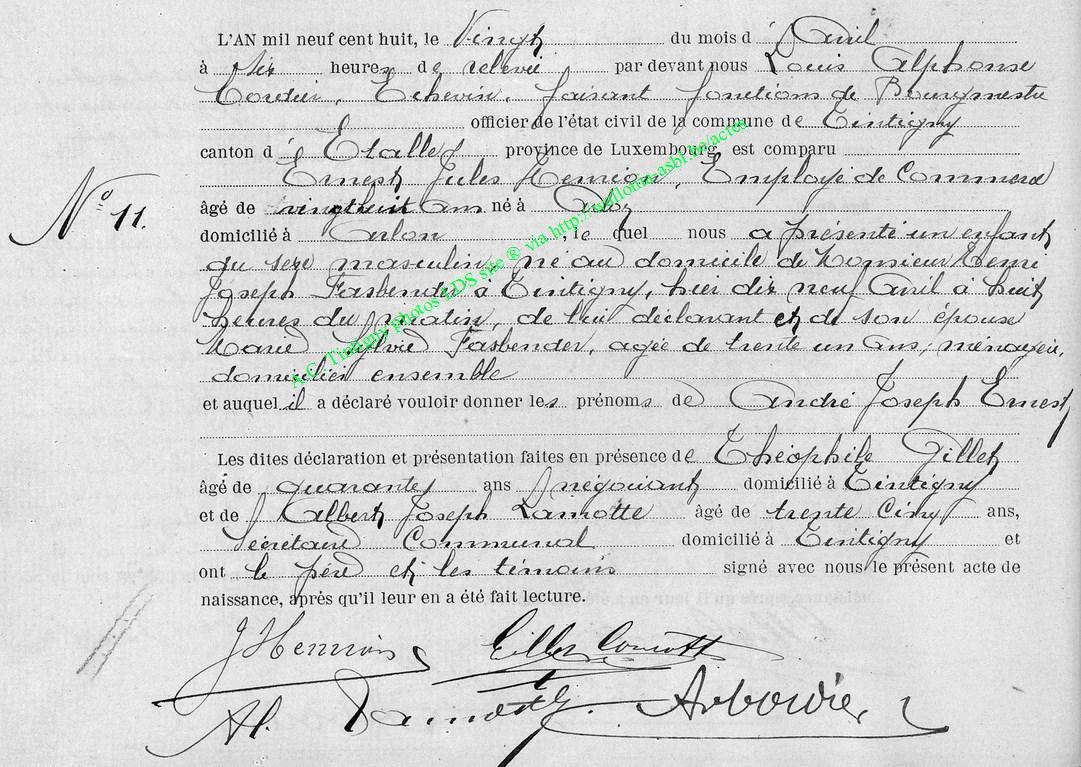 L'AN mil neuf cent huit, le Vingt du mois d'Avril
à Six heures de relevée par devant nous Louis Alphonse
Cordier, Echevin, faisant fonctions de Bourgmestre
officier de l'état civil de la commune de Tintigny
canton d'Etalle province de Luxembourg est comparu
Ernest Jules Henrion, Employé de Commerce
N° 11.
âgé de vingt huit ans né à
domicilié à Arlon, le quel nous a présenté un enfant
du sexe masculin, né au domicile de Monsieur Henri
Joseph Fasbender à Tintigny, hier dix neuf Avril à huit
heures du matin, de lui déclarant et de son épouse
Marie Sylvie Fasbender, agée de trente un ans, ménagère,
domiciliés ensemble
et auquel il a déclaré vouloir donner les prénoms de André Joseph Ernest
Les dites déclaration et présentation faites en présence de Théophile Gillet
âgé de quarante ans négociant domicilié à Tintigny
et de Albert Joseph Lamotte âgé de trente Cinq ans,
Secrétaire Communal domicilié à Tintigny et
ont le père et les témoins signé avec nous le présent acte de
naissance, après qu'il leur en a été fait lecture.
J Henrion Gillet
A. Lamotte
A.C. Tintigny photos LDS site ® via http://wallonia-asbl.be/actes